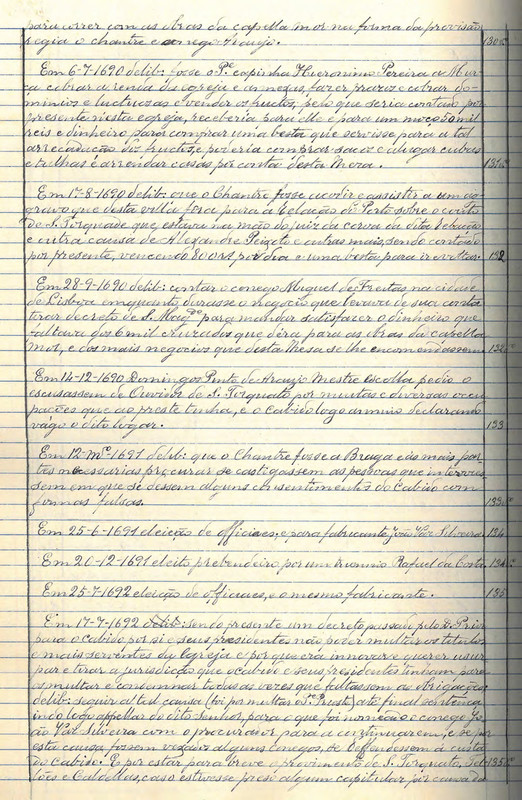 para correr com as obras da capella mor na forma da provisão
regia o chantre e conego Araujo. 130
Em 6-7-1690 delib: fosse o Pe capinha Hieronimo Pereira a Mur-
ça cobrar a renda da egreja e annexas, fazer prazos e cobrar do-
minios e luctuosas e vender os fructos, pelo que seria contado por
presente nesta egreja, receberia para elle e para um moço 50 mil
reis e dinheiro para comprar uma besta que servisse para a tal
arrecadação dos fructos, e poderia comprar saccos e alugar cubas
e tulhas e arrendar casas por conta desta Meza. 131
Em 17-8-1690 delib: que o Chantre fosse acodir e assistir a um ag-
gravo que desta villa fora para a Relação do Porto sobre o couto
de S. Torquato que estava na mão do juiz da coroa da dita Relação
e outra causa de Alexandre Peixoto e outras mais, sendo contado
por presente, vencendo 800 rs por dia e uma besta para ir e voltar. 132
Em 28-9-1690 delib: contar o conego Miguel de Freitas, na cidade
de Lisboa emquanto durasse o negocio que levava de sua costa
tirar decreto de S. Magde para mandar satisfazer o dinheiro que
faltava dos 6 mil cruzados que dera para as obras da capella
mor, e dos mais negocios que desta Mesa se lhe encomendassem 132
Em 14-12-1690 Domingos Pinto de Araujo Mestre Escolla pedio o
escusassem de Ouvidor de S. Torquato por muitas e diversas occu-
pações que ao preste tinha, e o Cabido logo annuio declarando
vago o dito logar. 133
Em 12-Mço-1691 delib: que o Chantre fosse a Braga e ás mais par-
tes necessarias procurar se castigassem as pessoas que
sem em que se dessem alguns consentimentos do Cabido com
formas falsas. 133
Em 25-6-1691 eleição de officiaes, e para fabricante João Vaz Silveira. 134
Em 20-12-1691 eleito prebendeiro por um triennio Rafael da Costa. 134
Em 25-7-1692 eleição de officiaes, e o mesmo fabricante. 135
Em 17-7-1692 delib: sendo presente um decreto passado pelo D. Prior
para o Cabido por si e seus presidentes não poder multar os titulos
e mais serventes da Egreja e por que era innovar e querer usur-
par e tirar a jurisdicção que o cabido e seus presidentes tinham para
os multar e condemnar todas as vezes que faltassem ás obrigações
delib: seguir a tal causa (foi por multar o Pe Preste) até final sentença
indo logo appellar do dito Senhor, para o que foi nomeado o conego Jo-
ão Vaz Silveira com o procurador para a continuarem, e se por
esta causa fossem vexados alguns conegos, se defendessem á custa
do Cabido. E por estar para breve o provimento de S. Torquato, Sel-
lões e Caldellas, caso estivesse preso algum capitular por causa da 135